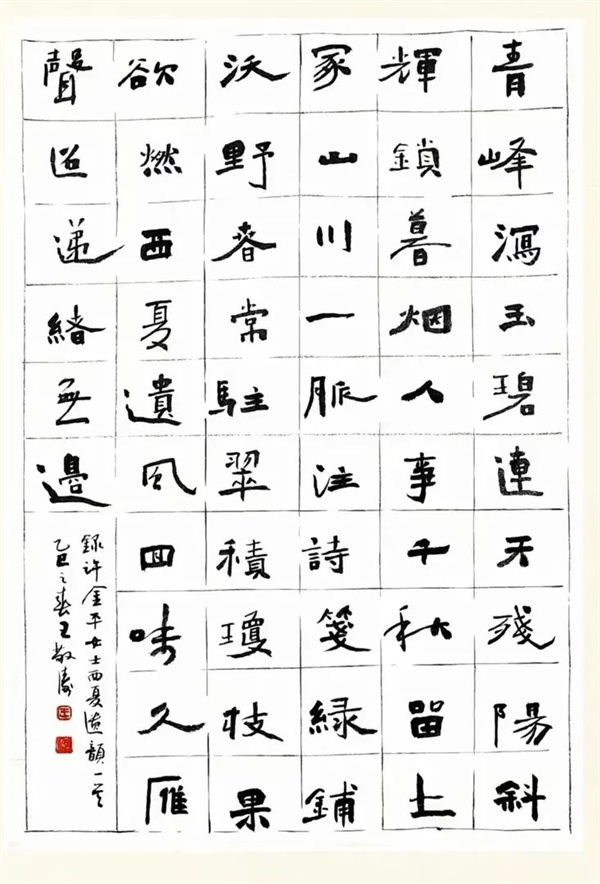 青峰瀉玉碧連天殘陽斜
輝鎖暮烟人事千秋留土
冢山川一脈注詩箋綠鋪
沃野春常駐翠積瓊枝果
欲燃西夏遺風回味久雁
聲迢遞緒無邊
録许金平女士西夏遺韻一首
乙巳之春王敬涛